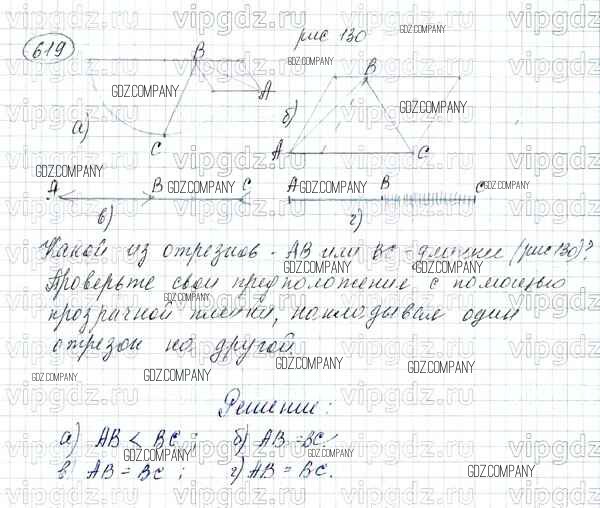 619
рис 130
В
А
а)
С
В
б)
А
С
А В С
в)
А В С
г)
Какой из отрезков - АВ или ВС - длиннее (рис 130)?
Проверьте свои предположение с помощью
прозрачной пленки, накладывая один
отрезок на другой.
Решение:
а) АВ < ВС ; б) АВ = ВС
в) АВ = ВС ; г) АВ = ВС.
vipgdz.ru
GDZ.COMPANY